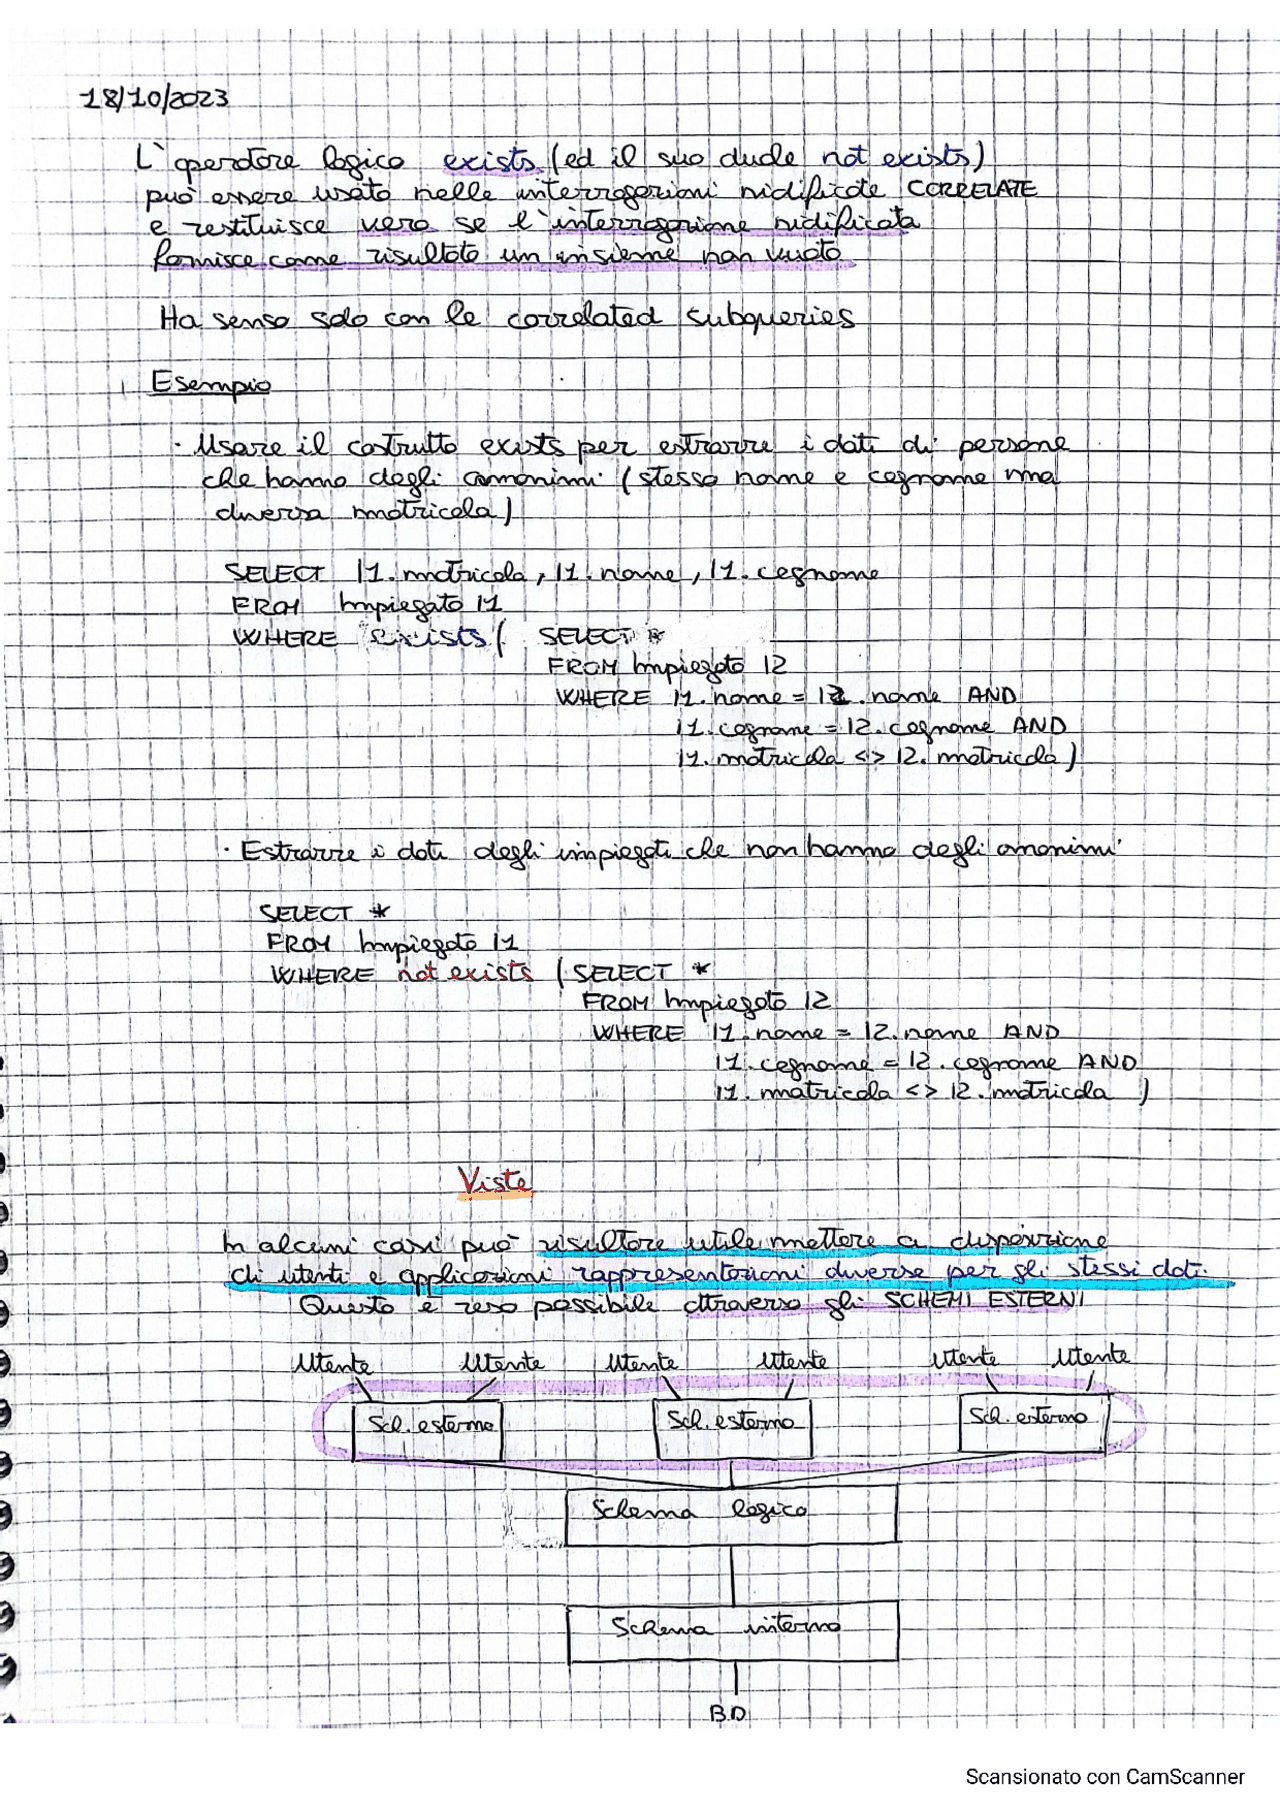 18/10/2023
L'operatore logico exists (ed il suo duale not exists)
può essere usato nelle interrogazioni nidificate CORRELATE
e restituisce vero se l'interrogazione nidificata
fornisce come risultato un insieme non vuoto
Ha senso solo con le correlated subqueries
Esempio
· Usare il costrutto exists per estrarre i dati di persone
che hanno degli omonimi (stesso nome e cognome ma
diversa matricola)
SELECT I1.matricola, I1.nome, I1.cognome
FROM Impiegato I1
WHERE exists( SELECT *
FROM Impiegato I2
WHERE I1.nome = I2.nome AND
I1.cognome = I2.cognome AND
I1.matricola <> I2.matricola)
· Estrarre i dati degli impiegati che non hanno degli omonimi
SELECT *
FROM Impiegato I1
WHERE not exists (SELECT *
FROM Impiegato I2
WHERE I1.nome = I2.nome AND
I1.cognome = I2.cognome AND
I1.matricola <> I2.matricola )
Viste
In alcuni casi può risultare utile mettere a disposizione
di utenti e applicazioni rappresentazioni diverse per gli stessi dati.
Questo è reso possibile attraverso gli SCHEMI ESTERNI
Utente Utente Utente Utente Utente Utente
Sch. esterno Sch. esterno Sch. esterno
Schema logico
Schema interno
BD
Scansionato con CamScanner